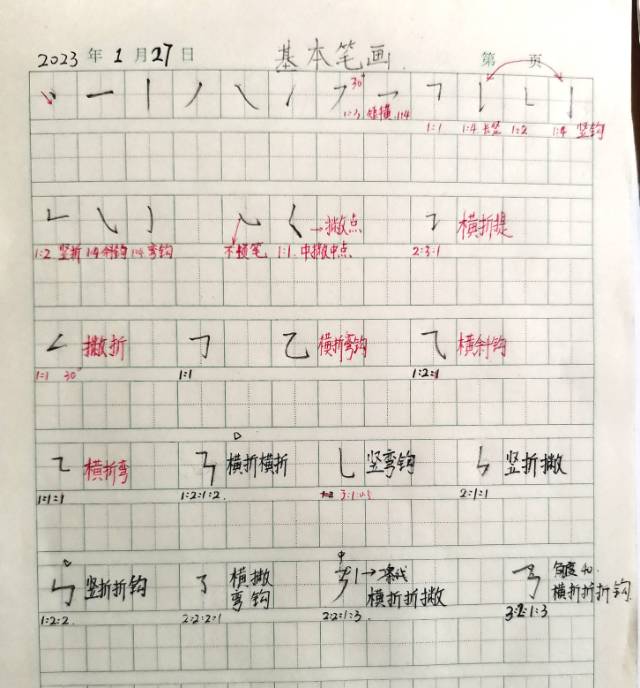 2023 年 1 月 27 日 基本笔画. 第 页
30°
1:3 短横 1:4
1:1 1:4 长竖 1:2 1:4 竖钩
→撇点 横折提
1:2 竖折 1:4 斜钩 1:4 弯钩 不顿笔 1:1. 中撇中点 2:3:1
撇折 横折弯钩 横斜钩
1:1 30° 1:1 1:2:1
横折弯 横折横折 竖弯钩 竖折撇
1:1:1 1:2:1:2. 3:1:0.5 2:1:1
竖折折钩 横撇弯钩 横折折撇 角度40. 横折折折钩
1:2:2. 2:2:2:1 2:2:1:3. 3:2:1:3